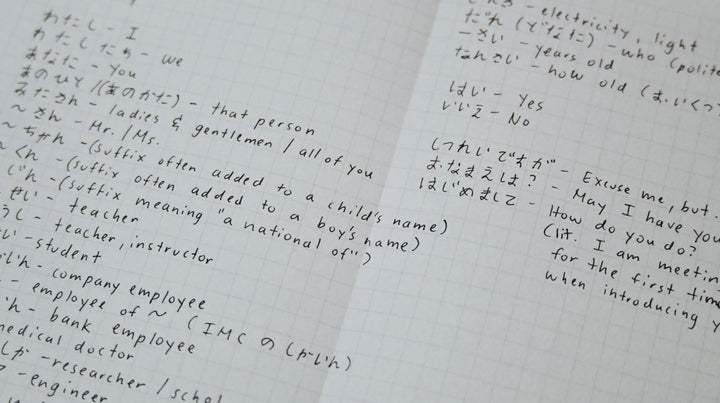 わたし - I
わたしたち - we
あなた - You
あのひと / (あのかた) - that person
みなさん - ladies & gentlemen / all of you
~さん - Mr. / Ms.
~ちゃん - (suffix often added to a child's name)
くん - (suffix often added to a boy's name)
じん - (suffix meaning "a national of")
せい - teacher
うし - teacher, instructor
い - student
いん - company employee
- employee of ~ (IMC のしゃいん)
いん - bank employee
medical doctor
しゃ - researcher / schol
- engineer
- electricity, light
だれ (どなた) - who (polite
-さい - years old
なんさい - how old (おいくつ
はい - Yes
いいえ - No
しつれいですが - Excuse me, but
おなまえは? - May I have you
はじめまして - How do you do?
(lit. I am meetin
for the first time
when introducing y